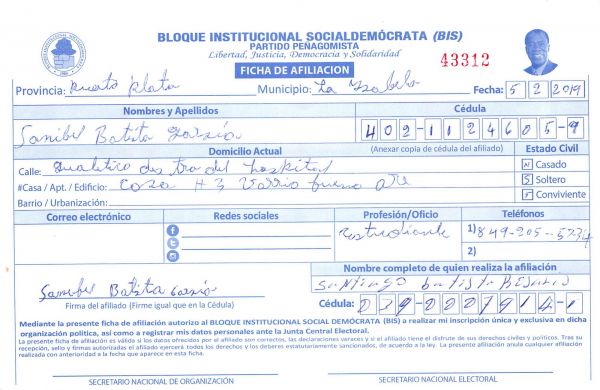 BLOQUE INSTITUCIONAL SOCIALDEMÓCRATA (BIS)
PARTIDO PEÑAGOMISTA
Libertad, Justicia, Democracia y Solidaridad
43312
FICHA DE AFILIACION
Provincia: Puerto Plata Municipio: La Isabela Fecha: 5 2 2019
Nombres y Apellidos Cédula
Sanibel Batista 402-1124605-9
Domicilio Actual (Anexar copia de cédula del afiliado) Estado Civil
Calle: del hospital
Casado
#Casa / Apt. / Edificio: Casa # 3
S Soltero
Barrio / Urbanización:
Conviviente
Correo electrónico Redes sociales Profesión/Oficio Teléfonos
Estudiante 1) 849-205-5734
2)
Nombre completo de quien realiza la afiliación
Santiago Batista
Sanibel Batista
Firma del afiliado (Firme igual que en la Cédula)
Cédula: 039-0007914-1
Mediante la presente ficha de afiliación autorizo al BLOQUE INSTITUCIONAL SOCIAL DEMÓCRATA (BIS) a realizar mi inscripción única y exclusiva en dicha
organización política, así como a registrar mis datos personales ante la Junta Central Electoral.
La presente ficha de afiliación es válida si los datos ofrecidos por el afiliado son correctos, las declaraciones varaces y si el afiliado tiene el disfrute de sus derechos civiles y políticos. Tras su
recepción, sello y firmas autorizadas el afiliado ejercerá todos los derechos y los deberes estatutariamente sancionados, de acuerdo a la ley. La presente afiliación anula cualquier afiliación
realizada con anterioridad a la fecha que aparece en esta ficha.
SECRETARIO NACIONAL DE ORGANIZACIÓN SECRETARIO NACIONAL ELECTORAL